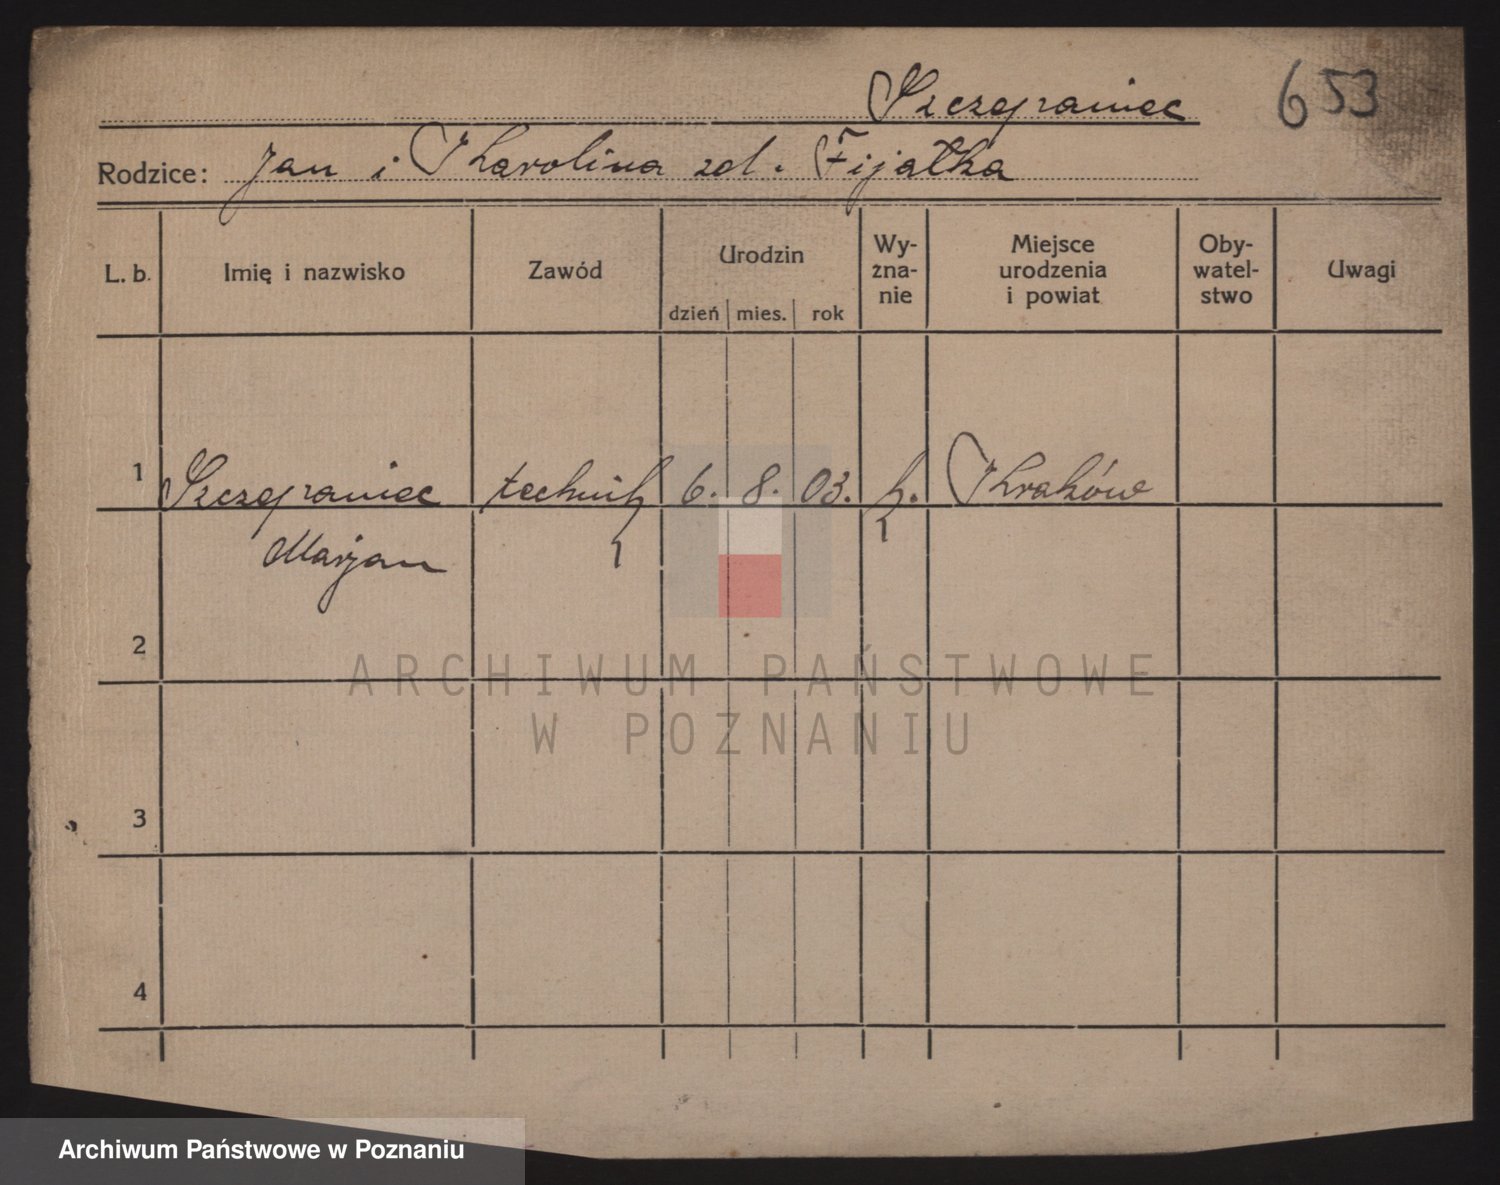 Szczepaniec
653
Rodzice: Jan i Karolina zd. Fijałka
L. b. Imię i nazwisko Zawód Urodzin dzień mies. rok Wy-
zna-
nie Miejsce
urodzenia
i powiat Oby-
watel-
stwo Uwagi
1 Szczepaniec technik 6. 8. 03. k. Kraków
Marjan
2
3
4
ARCHIWUM PAŃSTWOWE
W POZNANIU
Archiwum Państwowe w Poznaniu